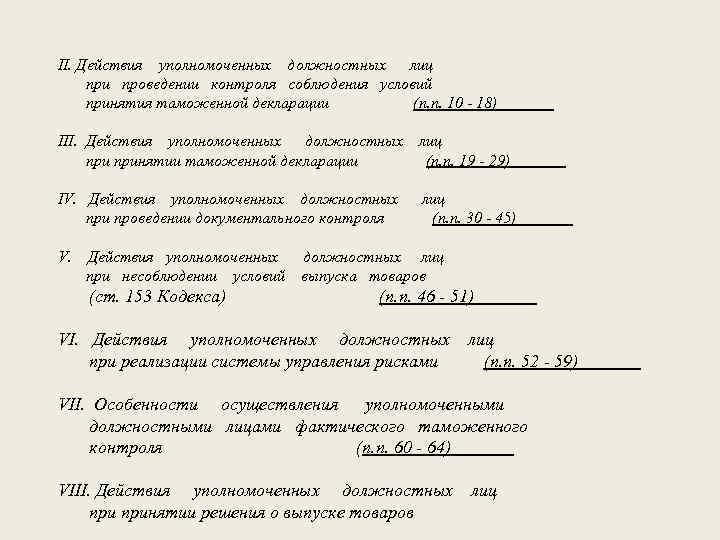 II. Действия уполномоченных должностных лиц
при проведении контроля соблюдения условий
принятия таможенной декларации (п.п. 10 - 18)
III. Действия уполномоченных должностных лиц
при принятии таможенной декларации (п.п. 19 - 29)
IV. Действия уполномоченных должностных лиц
при проведении документального контроля (п.п. 30 - 45)
V. Действия уполномоченных должностных лиц
при несоблюдении условий выпуска товаров
(ст. 153 Кодекса) (п.п. 46 - 51)
VI. Действия уполномоченных должностных лиц
при реализации системы управления рисками (п.п. 52 - 59)
VII. Особенности осуществления уполномоченными
должностными лицами фактического таможенного
контроля (п.п. 60 - 64)
VIII. Действия уполномоченных должностных лиц
при принятии решения о выпуске товаров